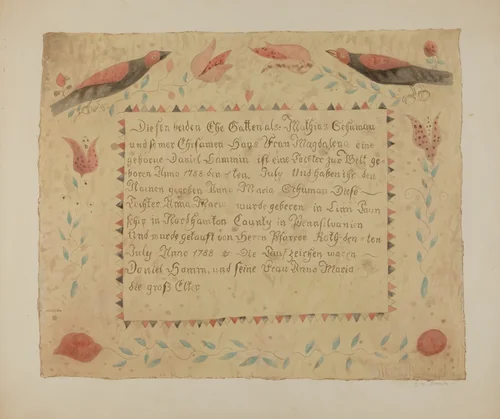 Diesen beiden Ehe Gatten als Mathias Schuman
und seiner Ehesamen Haus Frau Magdalena eine
geborne Daniel Hammin ist eine Tochter zur Welt ge-
boren Anno 1788 den ten July Und haben ihr den
Namen gegeben Anna Maria Schuman Diese
Tochter Anna Maria wurde geboren in Linn Taun
schip in Northamton County in Pensilvanien
Und wurde getauft von Herrn Pfarrer Roth den ten
July Anno 1788 Die Taufzeichen waren
Daniel Hamm und seine Frau Anna Maria
die groß Elter